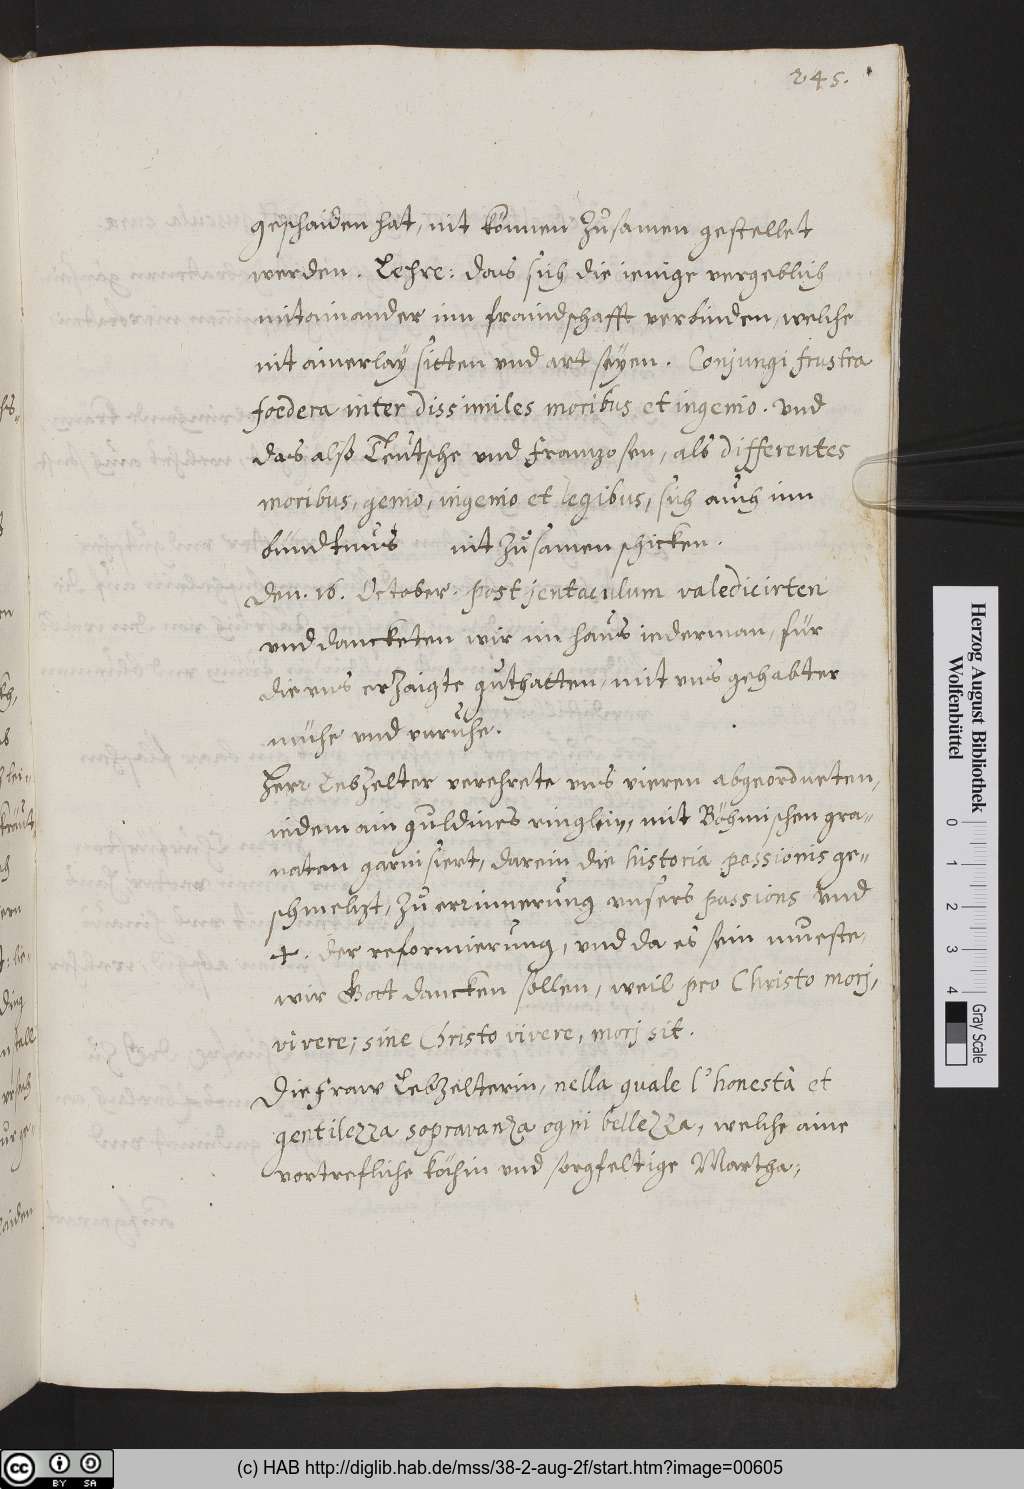 245.
geschaiden hat, nit können zůsamen gestellet
werden. Lehre: das sich die ienige vergeblich
mitainander inn fraindschafft verbinden, welche
nit ainerlaÿ sitten vnd art seyen. Conjungi frustra
foedera inter dissimiles moribus et ingenio. Vnd
das also Teütsche vnd Franzosen, als differentes
moribus, genio, ingenio et legibus, sich auch inn
bündtnus nit zůsamen schicken.
Den. 16. October. post jentaculum valedicirten
vnd dancketen wir im haus iederman, für
die vns erzaigte guthatten, mit vns gehabter
mühe vnd vnruhe.
Herr Lebzelter verehrete vns vieren abgeordneten,
iedem ain guldines ringlein, mit Böhmischen gra=
naten garnisiert, darein die historia passionis ge=
schmeltzt, zů errinnerung vnsers passions vnd
+. der reformierung, vnd da es sein mueste,
wir Gott dancken sollen, weil pro Christo morj,
vivere; sine Christo vivere, morj sit.
Die Fraw Lebzelterin, nella quale l'honestà et
gentilezza sopravanza ogni bellezza, welche aine
vortrefliche köchin vnd sorgfeltige Martha,
Herzog August Bibliothek
Wolfenbüttel
0 1 2 3 4
Gray Scale
(c) HAB http://diglib.hab.de/mss/38-2-aug-2f/start.htm?image=00605